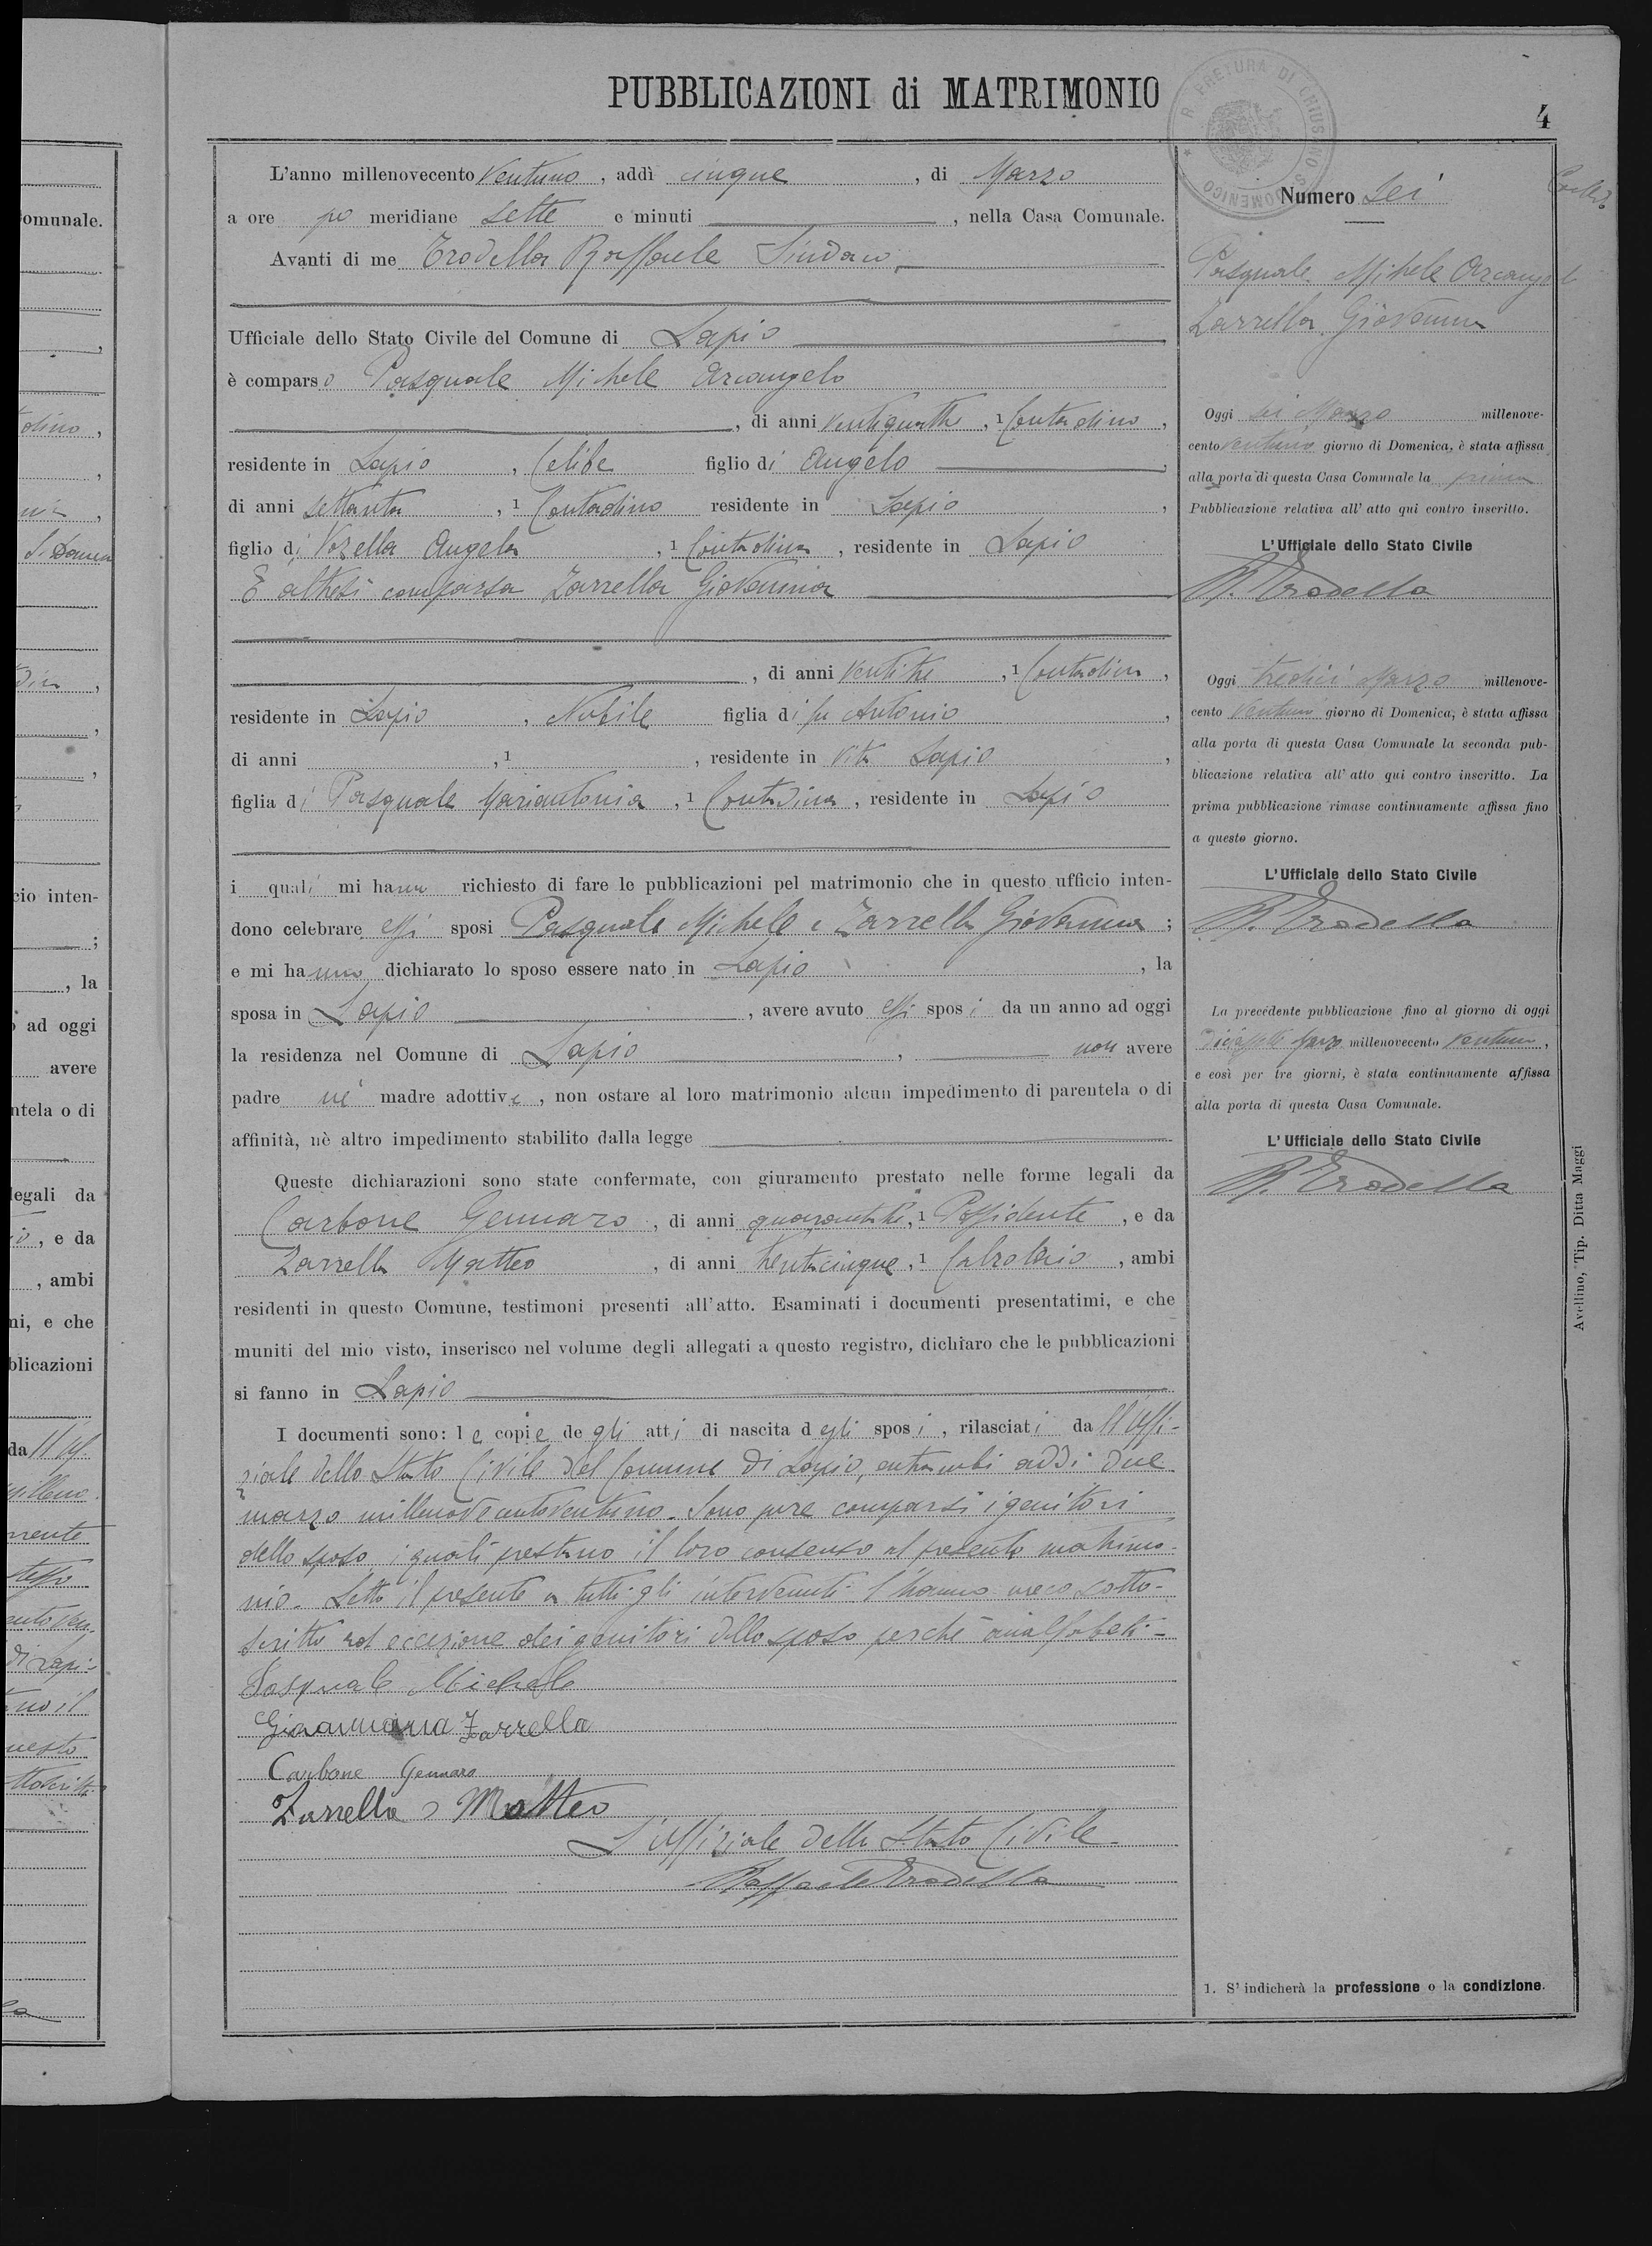 omunale.
dino,
S. Domen
cio inten-
;
, la
ad oggi
avere
ntela o di
legali da
, e da
, ambi
ni, e che
blicazioni
da
PUBBLICAZIONI di MATRIMONIO
R. PRETURA DI CHIUSANO S. DOMENICO
4
L'anno millenovecento Ventuno, addì cinque, di Marzo
a ore po meridiane sette e minuti, nella Casa Comunale.
Avanti di me Trodella Raffaele Sindaco
Ufficiale dello Stato Civile del Comune di Lapio
è comparso Pasquale Michele Arcangelo
, di anni ventiquattro, 1 Contadino,
residente in Lapio, Celibe figlio di Angelo
di anni settanta, 1 Contadino residente in Lapio,
figlio di Vozella Angela, 1 Contadina, residente in Lapio
E altresì comparsa Zarrella Giovannina
, di anni Ventitre, 1 Contadina,
residente in Lapio, Nubile figlia di fu Antonio,
di anni, 1, residente in vita Lapio,
figlia di Pasquale Mariantonia, 1 Contadina, residente in Lapio
i quali mi hanno richiesto di fare le pubblicazioni pel matrimonio che in questo ufficio inten-
dono celebrare essi sposi Pasquale Michele e Zarrella Giovannina;
e mi hanno dichiarato lo sposo essere nato in Lapio, la
sposa in Lapio, avere avuto essi sposi da un anno ad oggi
la residenza nel Comune di Lapio, non avere
padre nè madre adottivi, non ostare al loro matrimonio alcun impedimento di parentela o di
affinità, nè altro impedimento stabilito dalla legge
Queste dichiarazioni sono state confermate, con giuramento prestato nelle forme legali da
Carbone Gennaro, di anni quarantatre, 1 Possidente, e da
Zarrella Matteo, di anni trentacinque, 1 Calzolaio, ambi
residenti in questo Comune, testimoni presenti all'atto. Esaminati i documenti presentatimi, e che
muniti del mio visto, inserisco nel volume degli allegati a questo registro, dichiaro che le pubblicazioni
si fanno in Lapio
I documenti sono: le copie degli atti di nascita degli sposi, rilasciati dall'Uffi-
ziale dello Stato Civile del Comune di Lapio, entrambi addi due
marzo millenovecentoventuno. Sono pure comparsi i genitori
dello sposo i quali prestano il loro consenso al presente matrimo-
nio. Letto il presente a tutti gli intervenuti l'hanno meco sotto-
scritto ad eccezione dei genitori dello sposo perchè analfabeti-
Pasquale Michele
Giovannina Zarrella
Carbone Gennaro
Zarrella Matteo
L'Uffiziale dello Stato Civile
Raffaele Trodella
Numero Sei
Pasquale Michele Arcangelo
Zarrella Giovannina
Oggi sei Marzo millenove-
cento ventuno giorno di Domenica, è stata affissa
alla porta di questa Casa Comunale la prima
Pubblicazione relativa all'atto qui contro inscritto.
L'Ufficiale dello Stato Civile
R. Trodella
Oggi tredici Marzo millenove-
cento Ventuno giorno di Domenica, è stata affissa
alla porta di questa Casa Comunale la seconda pub-
blicazione relativa all'atto qui contro inscritto. La
prima pubblicazione rimase continuamente affissa fino
a questo giorno.
L'Ufficiale dello Stato Civile
R. Trodella
La precedente pubblicazione fino al giorno di oggi
diciassette marzo millenovecento Ventuno,
e così per tre giorni, è stata continuamente affissa
alla porta di questa Casa Comunale.
L'Ufficiale dello Stato Civile
R. Trodella
1. S'indicherà la professione o la condizione.
Avellino, Tip. Ditta Maggi